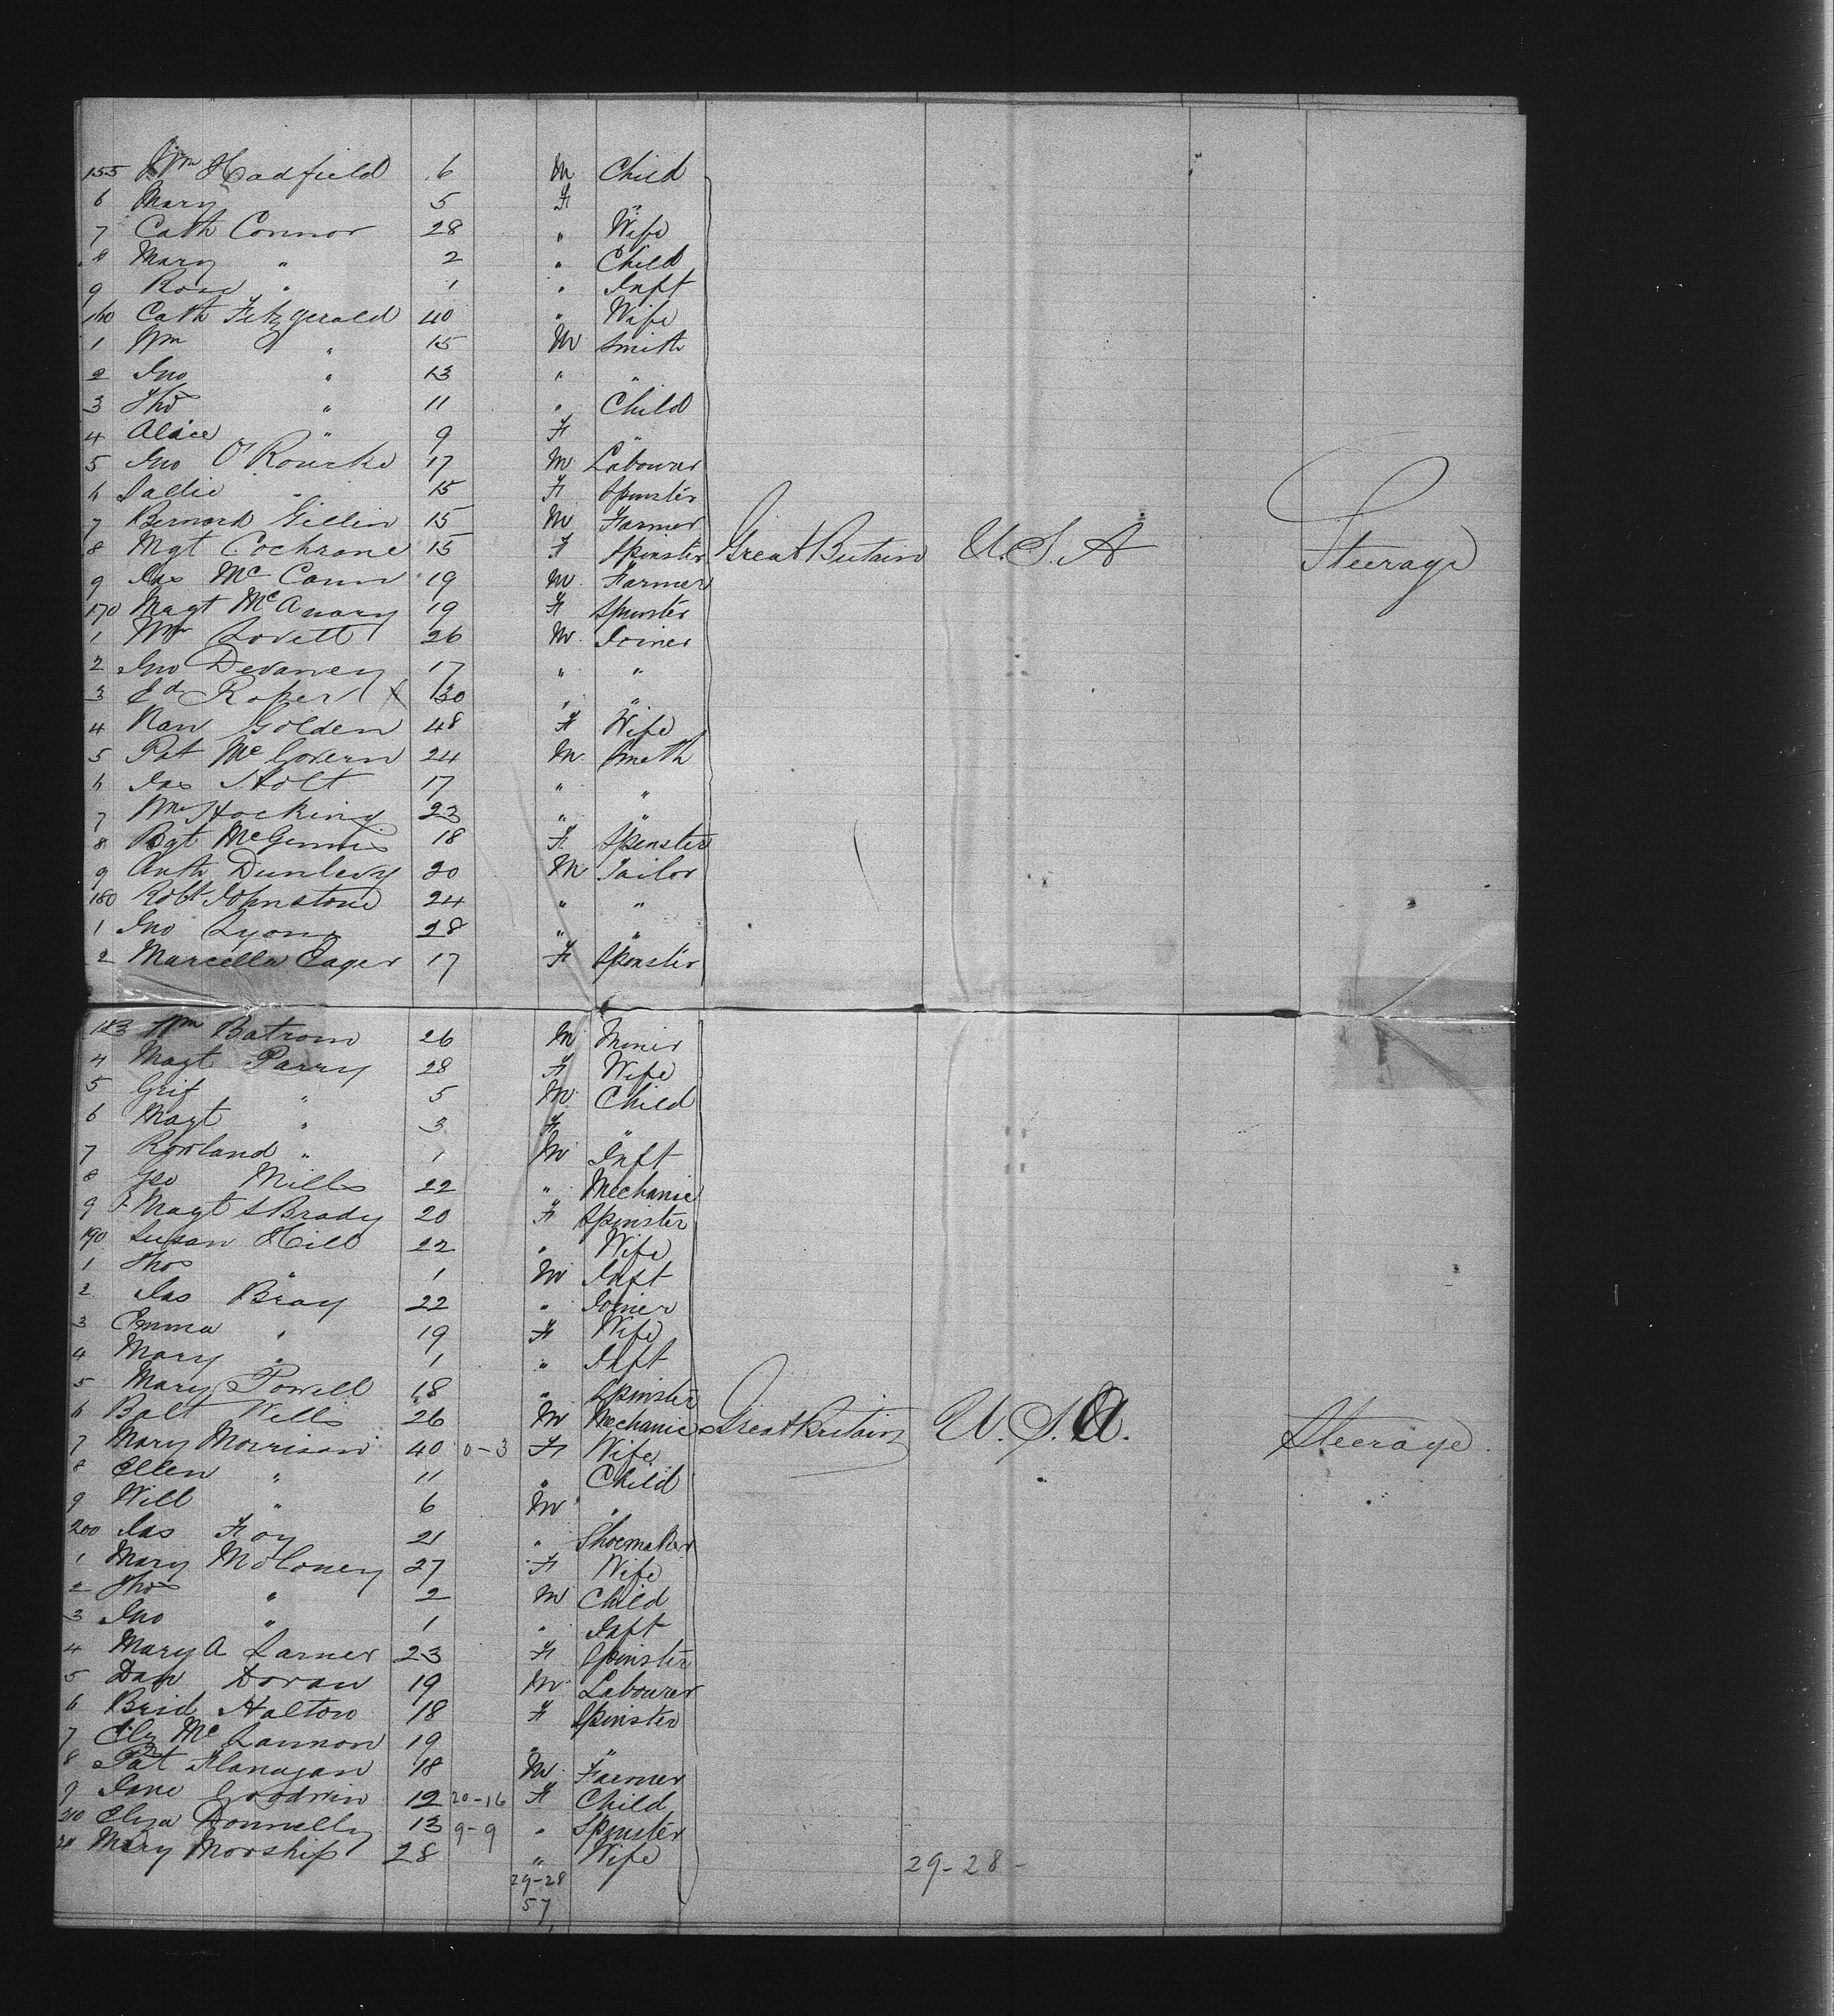 155 Wm Hadfield 6 M Child
6 Mary 5 F "
7 Cath Connor 28 " Wife
8 Mary " 2 " Child
9 Rose " 1 " Inft
160 Cath Fitzgerald 40 " Wife
1 Wm " 15 M Smith
2 Jno " 13 " "
3 Thos " 11 " Child
4 Alice " 9 F "
5 Jno O'Rourke 17 M Labourer
6 Sallie " 15 F Spinster
7 Bernard Gillin 15 M Farmer
8 Mgt Cochrane 15 F Spinster Great Britain U.S.A Steerage
9 Jas McCann 19 M Farmer
170 Magt McAnary 19 F Spinster
1 Wm Lovett 26 M Joiner
2 Jno Devaney 17 " "
3 Ed Roper X 30 " "
4 Nan Golden 48 F Wife
5 Pat McGovern 24 M Smith
6 Jas Holt 17 " "
7 Wm Hocking 23 " "
8 Bgt McGinnis 18 F Spinster
9 Anth Dunlevy 20 M Tailor
180 Robt Johnstone 24 " "
1 Jno Lyons 28 " "
2 Marcella Eager 17 F Spinster
183 Wm Batrom 26 M Miner
4 Magt Parry 28 F Wife
5 Grif " 5 M Child
6 Magt " 3 F "
7 Rowland " 1 M Inft
8 Geo Mills 22 " Mechanic
9 Magt Brady 20 F Spinster
190 Susan Hill 22 " Wife
1 Thos " 1 M Inft
2 Jas Bray 22 " Joiner
3 Emma " 19 F Wife
4 Mary " 1 " Inft
5 Mary Powell 18 " Spinster
6 Balt Wells 26 M Mechanic Great Britain U.S.A. Steerage
7 Mary Morrison 40 0-3 F Wife
8 Ellen " 11 " Child
9 Will " 6 M "
200 Jas Foy 21 " Shoemaker
1 Mary Moloney 27 F Wife
2 Thos " 2 M Child
3 Jno " 1 " Inft
4 Mary A Larner 23 F Spinster
5 Dan Doran 19 M Labourer
6 Brid Halton 18 F Spinster
7 Elz McLannon 19 " "
8 Pat Flanagan 18 M Farmer
9 Jane Goodwin 12 20-16 F Child
210 Eliza Donnelly 13 9-9 " Spinster
211 Mary Morship 28 " Wife 29-28-
29-28
57